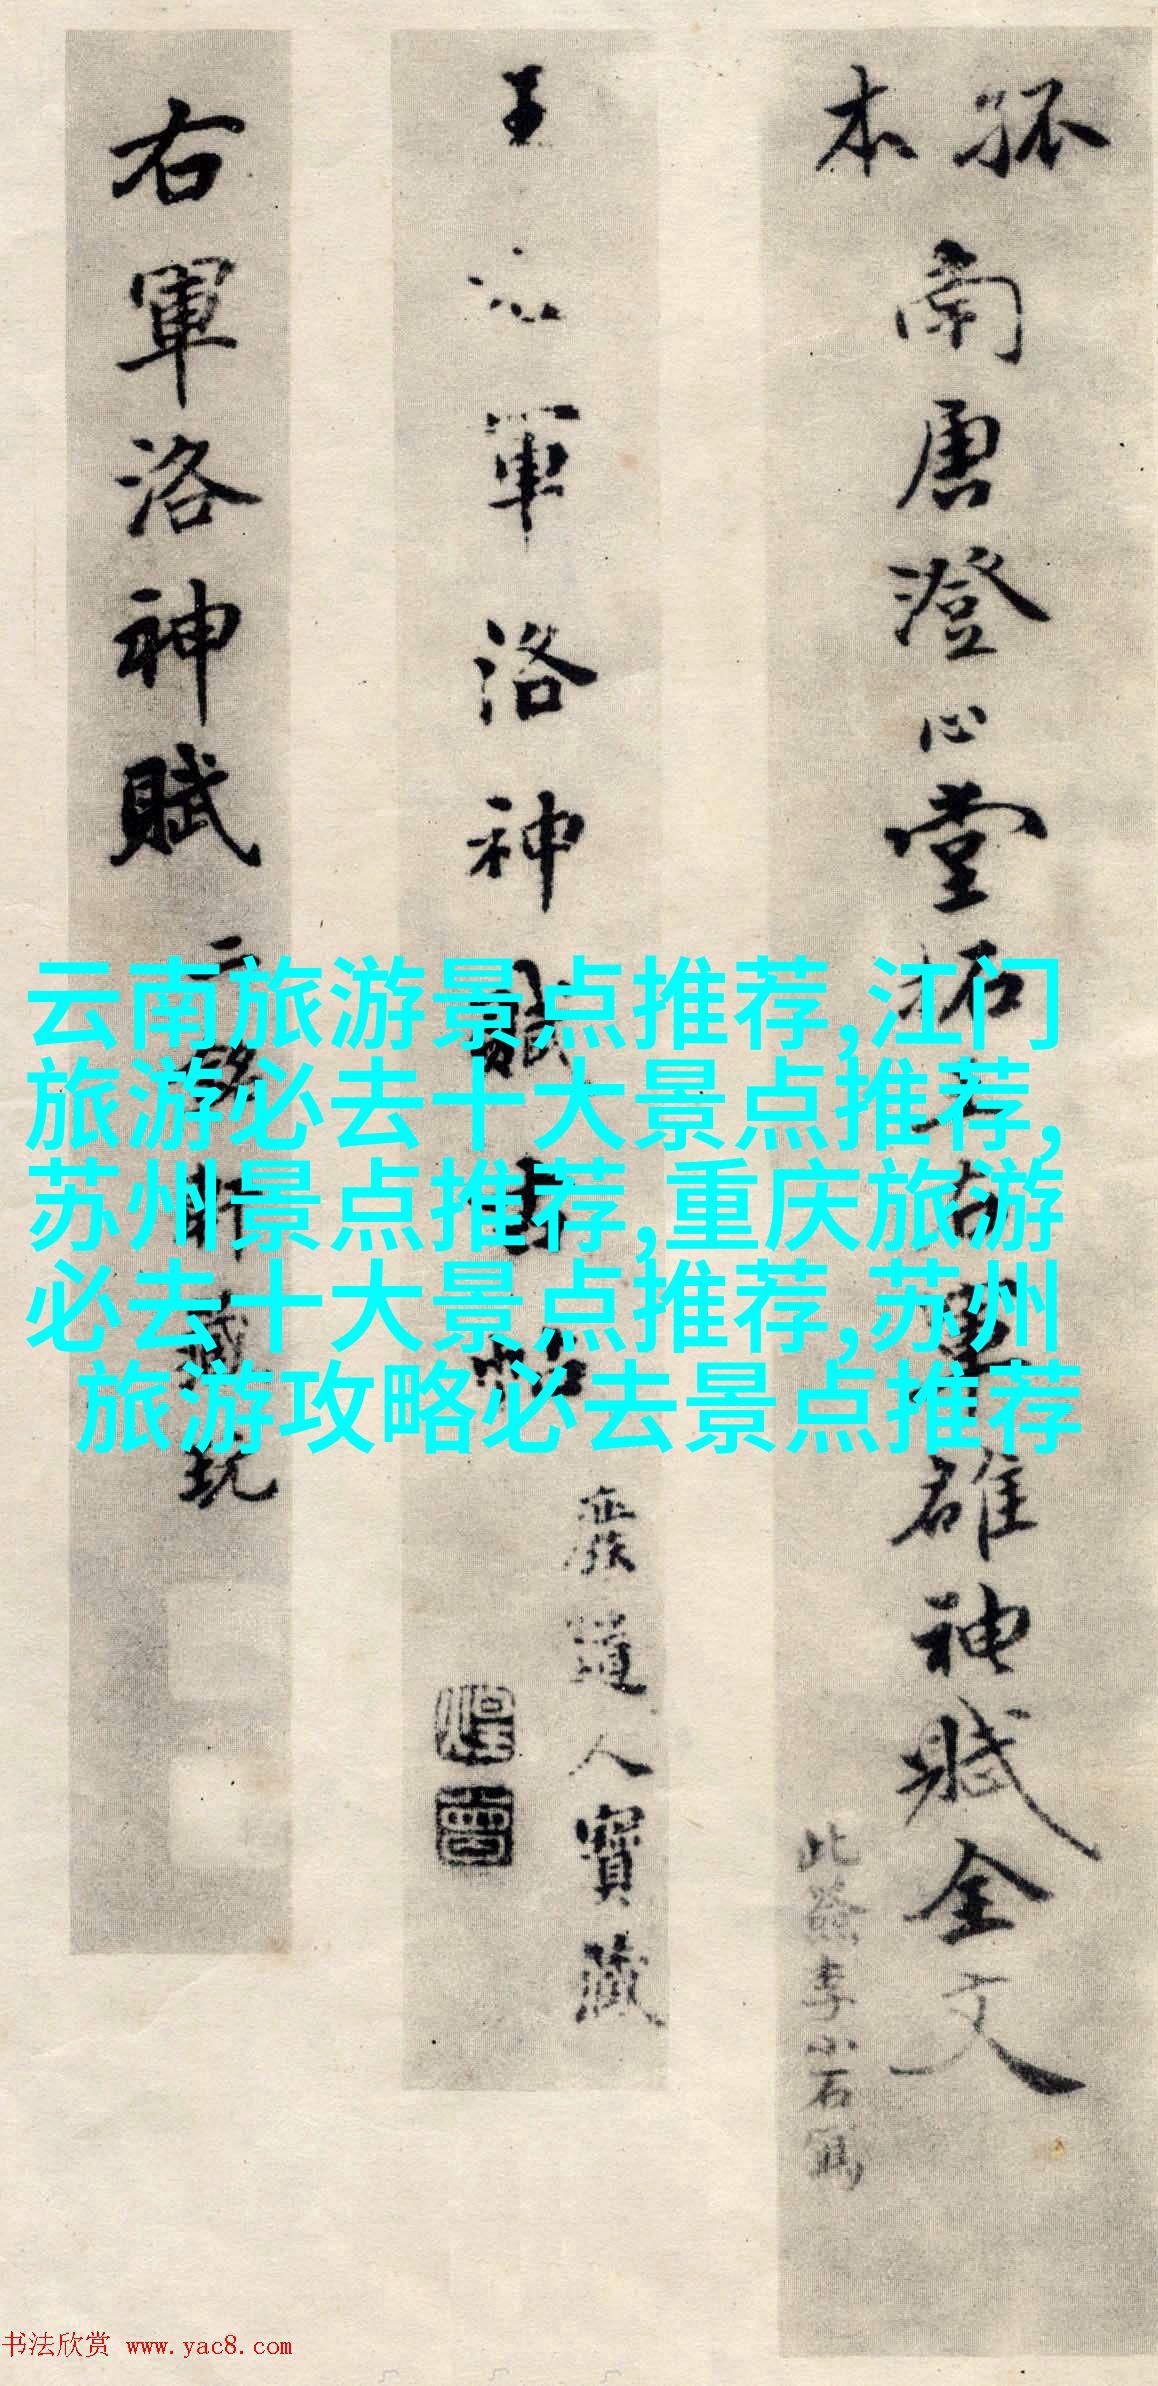 孤本
南唐澄心堂拓
雄神赋全文
此签李小石写
王
軍洛神賦
道人寶藏
右軍洛神賦
藏玩
云南旅游景点推荐,江门
旅游必去十大景点推荐,
苏州景点推荐,重庆旅游
必去十大景点推荐,苏州
旅游攻略必去景点推荐
书法欣赏 www.yac8.com